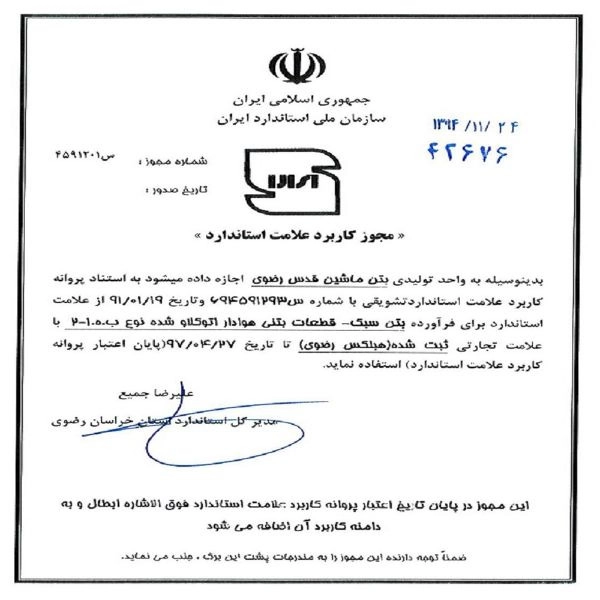 جمهوری اسلامی ایران
سازمان ملی استاندارد ایران
۱۳۹۴/۱۱/۲۴
۴۲۶۷۶
شماره مجوز : س۴۵۹۱۲۰۱
تاریخ صدور :
« مجوز کاربرد علامت استاندارد »
بدینوسیله به واحد تولیدی بتن ماشین قدس رضوی اجازه داده میشود به استناد پروانه
کاربرد علامت استانداردتشویقی با شماره س۶۹۴۵۹۱۲۹۳ وتاریخ ۹۱/۰۱/۱۹ از علامت
استاندارد برای فرآورده بتن سبک- قطعات بتنی هوادار اتوکلاو شده نوع ب.ه.ا-۲ با
علامت تجارتی ثبت شده(هبلکس رضوی) تا تاریخ ۹۷/۰۴/۲۷(پایان اعتبار پروانه
کاربرد علامت استاندارد) استفاده نماید.
علیرضا جمیع
مدیر کل استاندارد استان خراسان رضوی
این مجوز در پایان تاریخ اعتبار پروانه کاربرد علامت استاندارد فوق الاشاره ابطال و به
دامنه کاربرد آن اضافه می شود
ضمناً توجه دارنده این مجوز را به مندرجات پشت این برگ ، جلب می نماید.